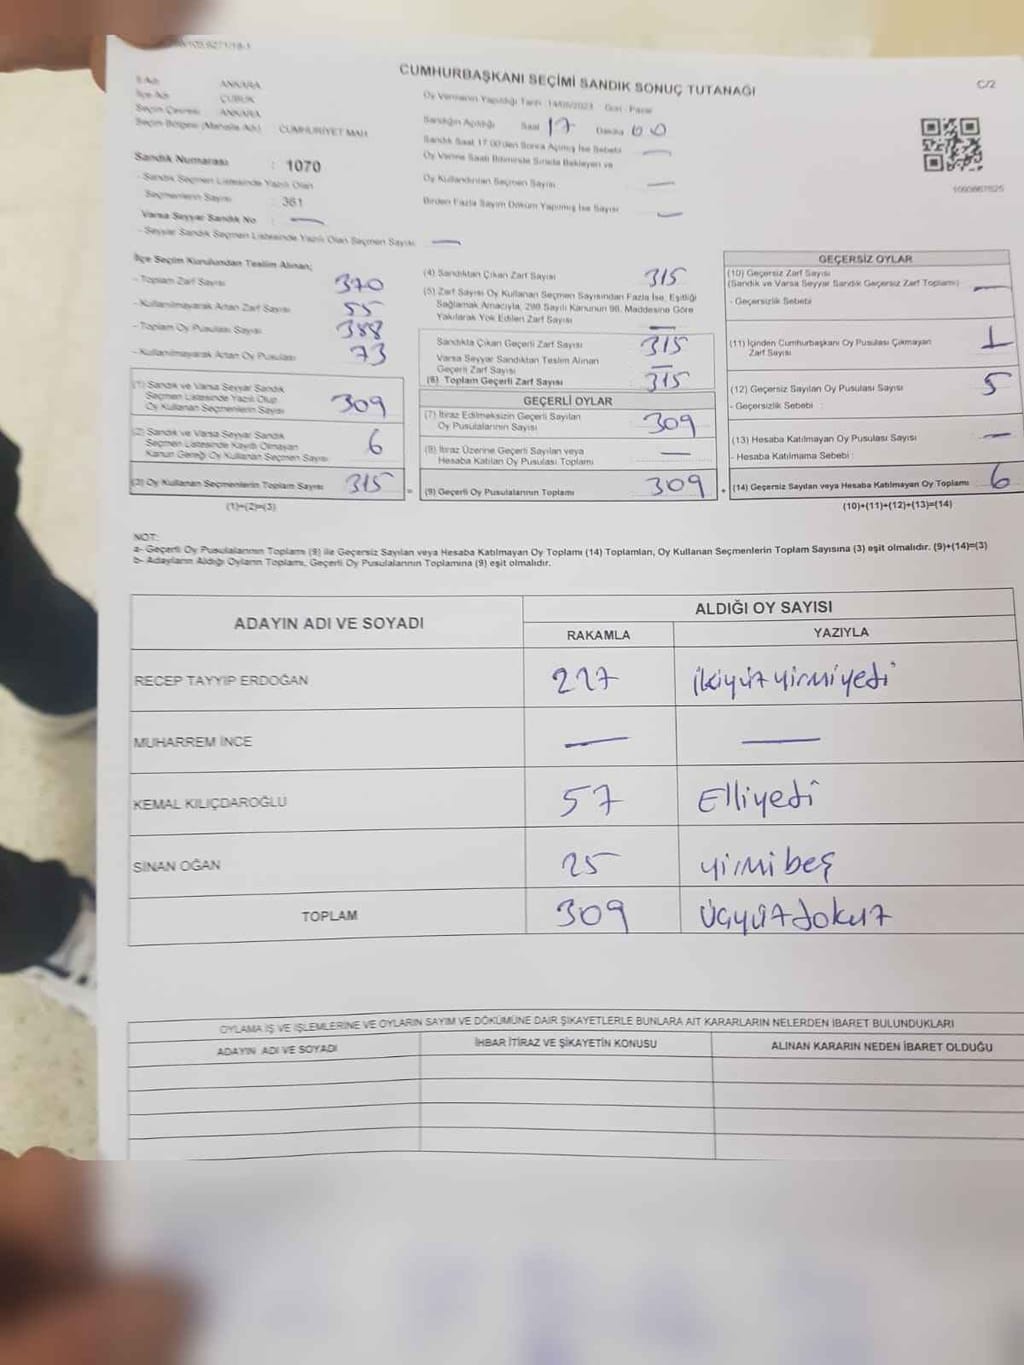 CUMHURBAŞKANI SEÇİMİ SANDIK SONUÇ TUTANAĞI
C/2
İl Adı ANKARA
İlçe Adı ÇUBUK
Seçim Çevresi ANKARA
Seçim Bölgesi (Mahalle Adı) : CUMHURİYET MAH
Sandık Numarası : 1070
- Sandık Seçmen Listesinde Yazılı Olan
Seçmenlerin Sayısı : 361
Varsa Seyyar Sandık No : —
- Seyyar Sandık Seçmen Listesinde Yazılı Olan Seçmen Sayısı —
Oy Vermenin Yapıldığı Tarih : 14/05/2023 Gün : Pazar
Sandığın Açıldığı Saat 17 Dakika 00
Sandık Saat 17.00'den Sonra Açılmış İse Sebebi —
Oy Verme Saati Bitiminde Sırada Bekleyen ve
Oy Kullandırılan Seçmen Sayısı —
Birden Fazla Sayım Döküm Yapılmış İse Sayısı —
İlçe Seçim Kurulundan Teslim Alınan;
- Toplam Zarf Sayısı 370
- Kullanılmayarak Artan Zarf Sayısı 55
- Toplam Oy Pusulası Sayısı 388
- Kullanılmayarak Artan Oy Pusulası 73
(1) Sandık ve Varsa Seyyar Sandık
Seçmen Listesinde Yazılı Olup
Oy Kullanan Seçmenlerin Sayısı 309
(2) Sandık ve Varsa Seyyar Sandık
Seçmen Listesinde Kayıtlı Olmayan
Kanun Gereği Oy Kullanan Seçmen Sayısı 6
(3) Oy Kullanan Seçmenlerin Toplam Sayısı 315
(1)+(2)=(3)
(4) Sandıktan Çıkan Zarf Sayısı 315
(5) Zarf Sayısı Oy Kullanan Seçmen Sayısından Fazla İse, Eşitliği
Sağlamak Amacıyla, 298 Sayılı Kanunun 98. Maddesine Göre
Yakılarak Yok Edilen Zarf Sayısı —
Sandıkta Çıkan Geçerli Zarf Sayısı 315
Varsa Seyyar Sandıktan Teslim Alınan
Geçerli Zarf Sayısı —
(6) Toplam Geçerli Zarf Sayısı 315
GEÇERLİ OYLAR
(7) İtiraz Edilmeksizin Geçerli Sayılan
Oy Pusulalarının Sayısı 309
(8) İtiraz Üzerine Geçerli Sayılan veya
Hesaba Katılan Oy Pusulası Toplamı —
= (9) Geçerli Oy Pusulalarının Toplamı 309 +
GEÇERSİZ OYLAR
(10) Geçersiz Zarf Sayısı
(Sandık ve Varsa Seyyar Sandık Geçersiz Zarf Toplamı) —
- Geçersizlik Sebebi
(11) İçinden Cumhurbaşkanı Oy Pusulası Çıkmayan
Zarf Sayısı 1
(12) Geçersiz Sayılan Oy Pusulası Sayısı 5
- Geçersizlik Sebebi :
(13) Hesaba Katılmayan Oy Pusulası Sayısı —
- Hesaba Katılmama Sebebi :
(14) Geçersiz Sayılan veya Hesaba Katılmayan Oy Toplamı 6
(10)+(11)+(12)+(13)=(14)
NOT:
a- Geçerli Oy Pusulalarının Toplamı (9) ile Geçersiz Sayılan veya Hesaba Katılmayan Oy Toplamı (14) Toplamları, Oy Kullanan Seçmenlerin Toplam Sayısına (3) eşit olmalıdır. (9)+(14)=(3)
b- Adayların Aldığı Oyların Toplamı, Geçerli Oy Pusulalarının Toplamına (9) eşit olmalıdır.
ADAYIN ADI VE SOYADI
ALDIĞI OY SAYISI
RAKAMLA YAZIYLA
RECEP TAYYİP ERDOĞAN 227 ikiyüzyirmiyedi
MUHARREM İNCE — —
KEMAL KILIÇDAROĞLU 57 Elliyedi
SİNAN OĞAN 25 yirmibeş
TOPLAM 309 Üçyüzdokuz
OYLAMA İŞ VE İŞLEMLERİNE VE OYLARIN SAYIM VE DÖKÜMÜNE DAİR ŞİKAYETLERLE BUNLARA AİT KARARLARIN NELERDEN İBARET BULUNDUKLARI
ADAYIN ADI VE SOYADI İHBAR İTİRAZ VE ŞİKAYETİN KONUSU ALINAN KARARIN NEDEN İBARET OLDUĞU